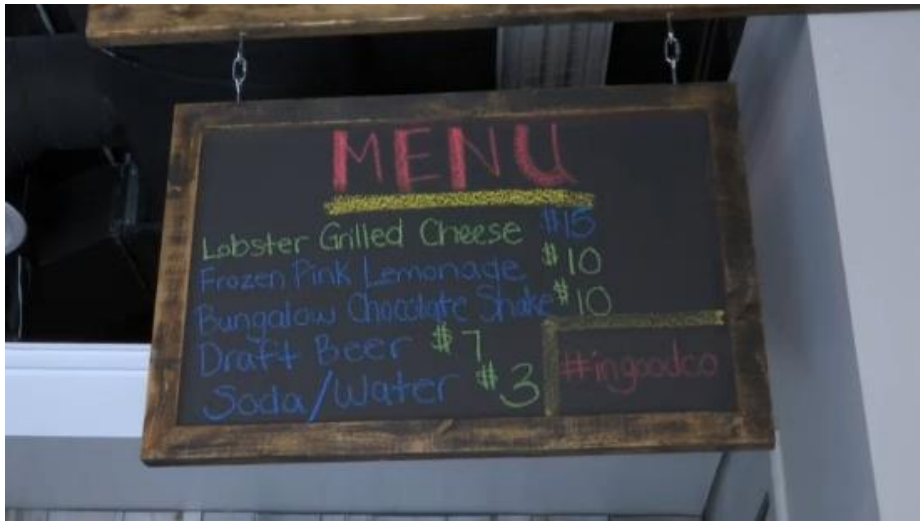 MENU
Lobster Grilled Cheese $15
Frozen Pink Lemonade $10
Bungalow Chocolate Shake $10
Draft Beer $7
Soda/Water $3
#ingoodco